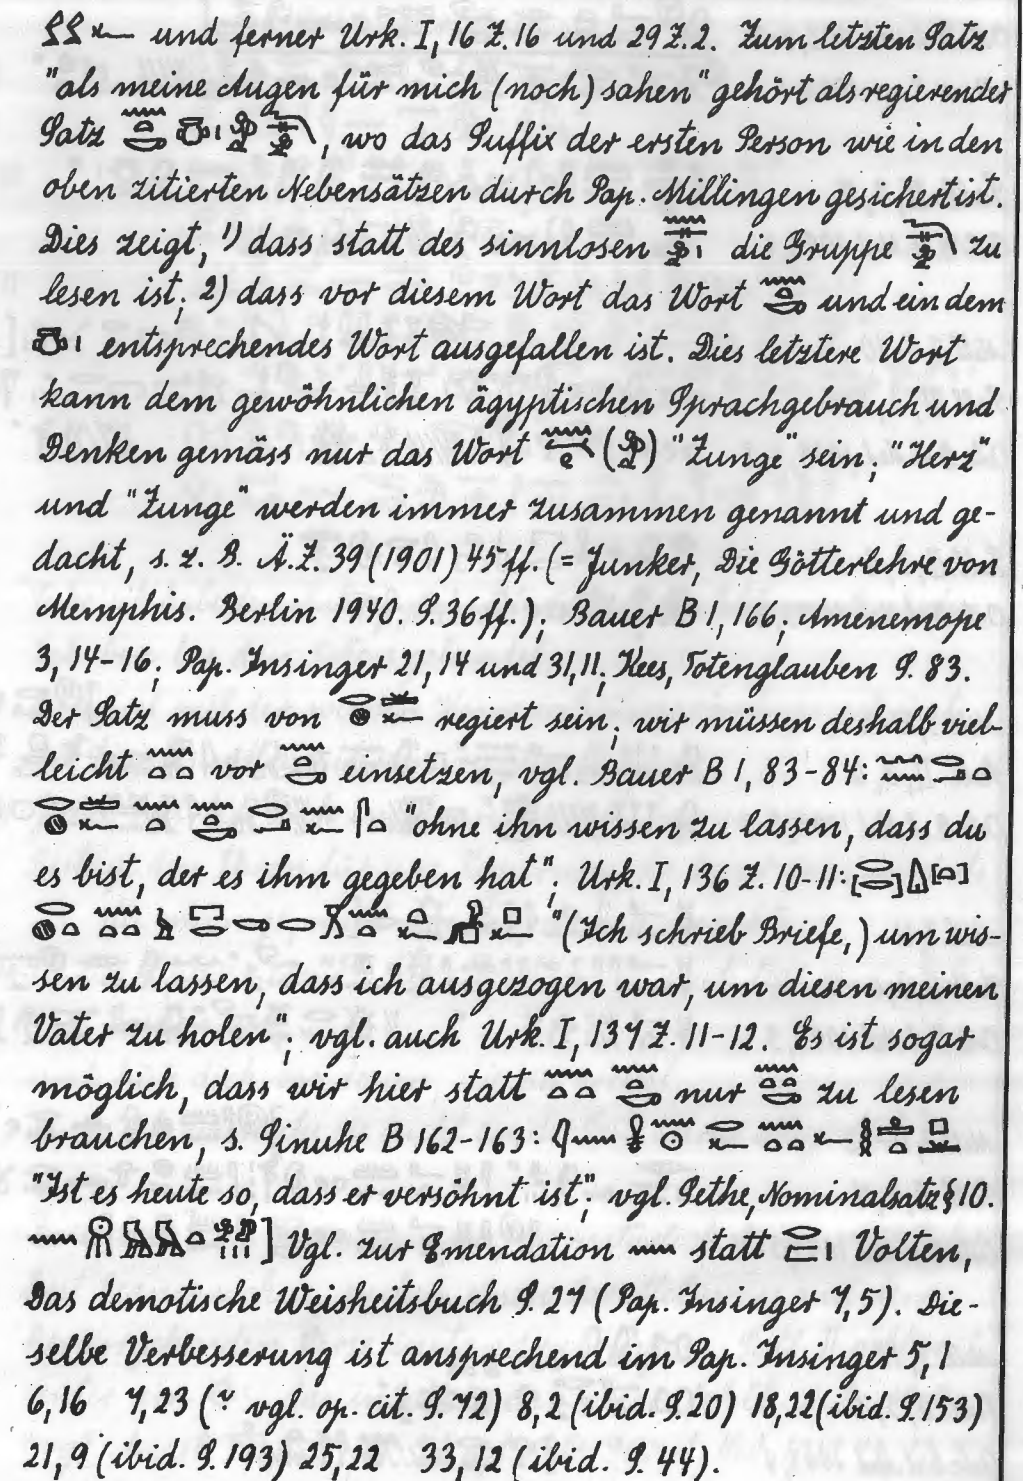 und ferner Urk. I, 16 Z. 16 und 29 Z. 2. Zum letzten Satz
"als meine Augen für mich (noch) sahen" gehört als regierender
Satz , wo das Suffix der ersten Person wie in den
oben zitierten Nebensätzen durch Pap. Millingen gesichert ist.
Dies zeigt, 1) dass statt des sinnlosen die Gruppe zu
lesen ist; 2) dass vor diesem Wort das Wort und ein dem
entsprechendes Wort ausgefallen ist. Dies letztere Wort
kann dem gewöhnlichen ägyptischen Sprachgebrauch und
Denken gemäss nur das Wort "Zunge" sein; "Herz"
und "Zunge" werden immer zusammen genannt und ge-
dacht, s. z. B. Ä.Z. 39 (1901) 45 ff. (= Junker, Die Götterlehre von
Memphis. Berlin 1940. S. 36 ff.); Bauer B 1, 166; Amenemope
3, 14-16; Pap. Insinger 21, 14 und 31, 11; Kees, Totenglauben S. 83.
Der Satz muss von regiert sein; wir müssen deshalb viel-
leicht vor einsetzen, vgl. Bauer B 1, 83-84:
"ohne ihn wissen zu lassen, dass du
es bist, der es ihm gegeben hat"; Urk. I, 136 Z. 10-11:
"(Ich schrieb Briefe,) um wis-
sen zu lassen, dass ich ausgezogen war, um diesen meinen
Vater zu holen"; vgl. auch Urk. I, 137 Z. 11-12. Es ist sogar
möglich, dass wir hier statt nur zu lesen
brauchen, s. Sinuhe B 162-163:
"Ist es heute so, dass er versöhnt ist"; vgl. Sethe, Nominalsatz § 10.
] Vgl. zur Emendation statt Volten,
Das demotische Weisheitsbuch S. 27 (Pap. Insinger 7, 5). Die-
selbe Verbesserung ist ansprechend im Pap. Insinger 5, 1
6, 16 7, 23 (? vgl. op. cit. S. 72) 8, 2 (ibid. S. 20) 18, 22 (ibid. S. 153)
21, 9 (ibid. S. 193) 25, 22 33, 12 (ibid. S. 44).